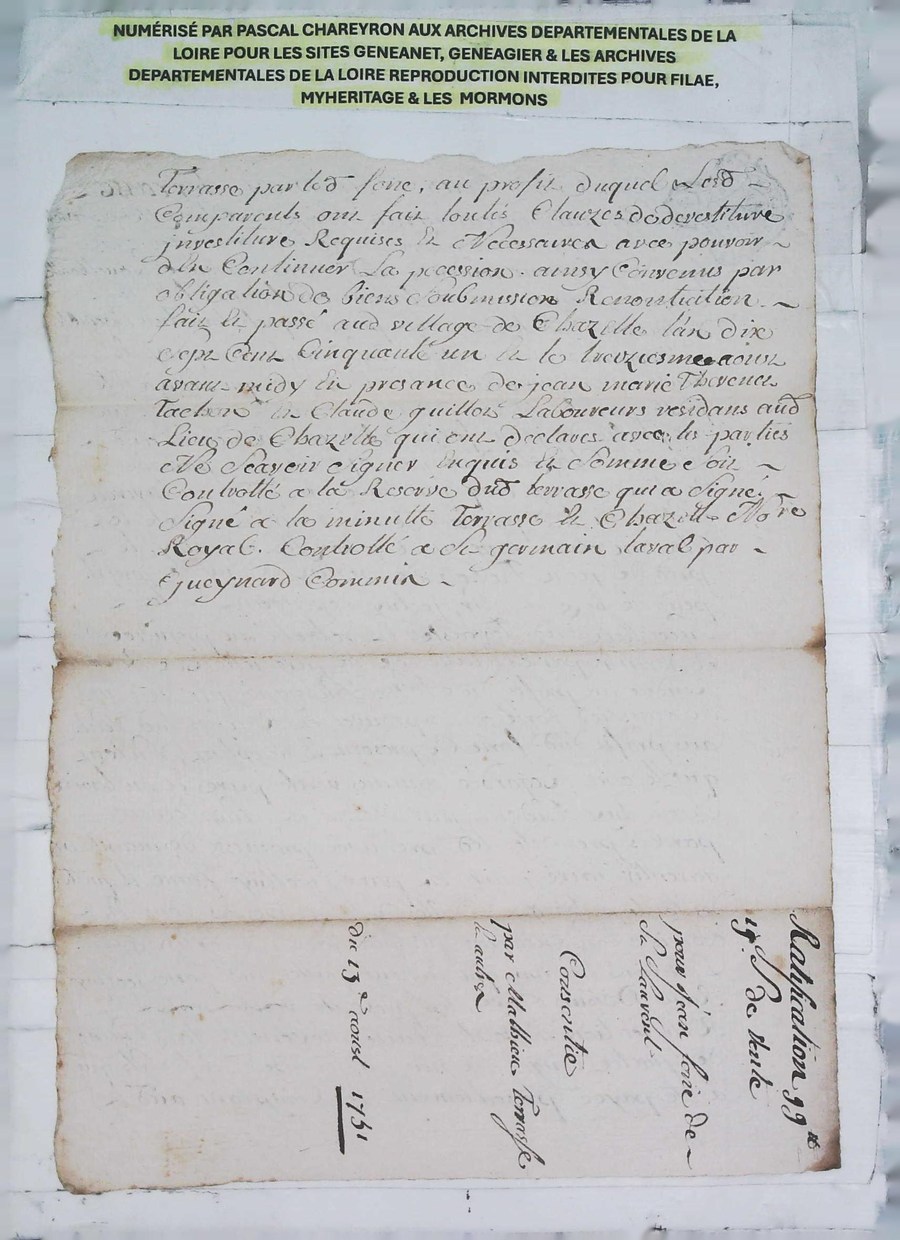 NUMÉRISÉ PAR PASCAL CHAREYRON AUX ARCHIVES DEPARTEMENTALES DE LA
LOIRE POUR LES SITES GENEANET, GENEAGIER & LES ARCHIVES
DEPARTEMENTALES DE LA LOIRE REPRODUCTION INTERDITES POUR FILAE,
MYHERITAGE & LES MORMONS
Terrasse par led foric, au profit duquel Lesd -
Comparents ont fait toutes Clauzes de devestiture
jnvestiture Requises et Necessaires avec pouvoir -
den Continuer La pocession. ainsy Convenus par
obligation de biens Soubmission Renontiation. -
fait et passé aud village de Chazelle l'an dix
Sept Cent Cinquante un et le treiziesme aoust
avant midy En presance de jean marie Thevenet
et Claude guillot Laboureurs residans aud
Lieu de Chazelle qui ont declares avec les parties
Ne Scavoir Signer Enquis et Somme Soit -
Controllé a la Reserve dud terrasse qui a Signé.
Signé a la minutte Terrasse et Chazelle Nore
Royal. Controllé a St germain laval par -
Gueynard Commis -
Ratification
de vente
pour jean foric de -
Consentie
par Mathieu Terrasse
& autres
du 13e aoust 1751